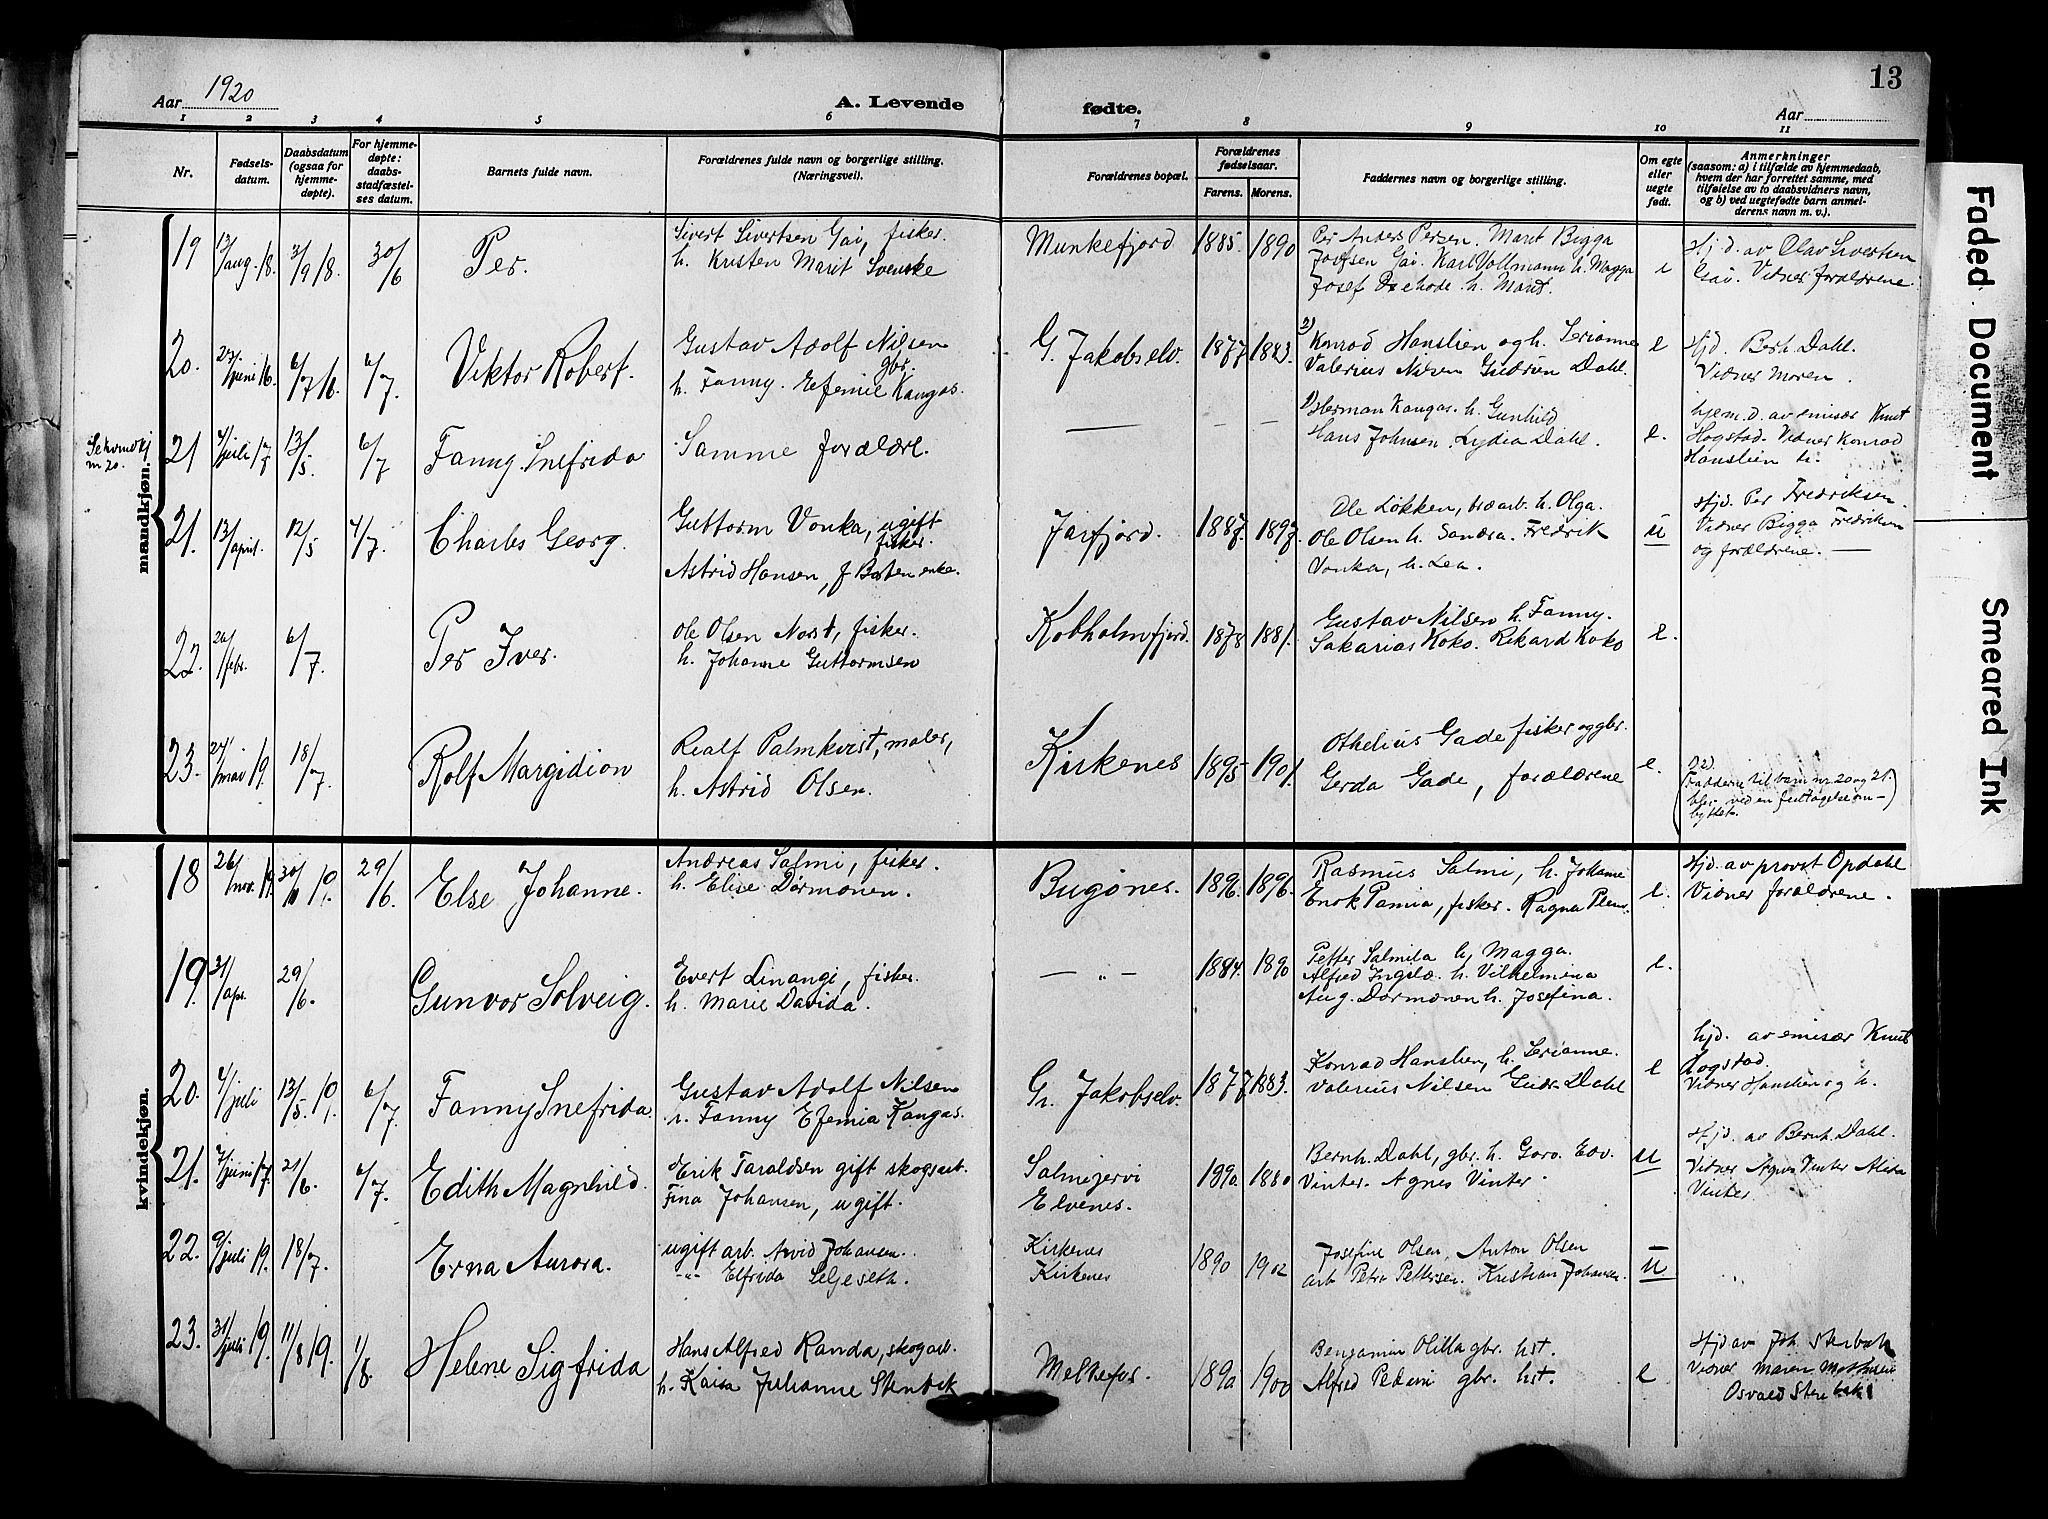 13
Aar 1920
A. Levende
fødte.
Aar
1 2 3 4 5 6 7 8 9 10 11
Nr.
Fødsels-
datum.
Daabsdatum
(ogsaa for
hjemme-
døpte).
For hjemme-
døpte:
daabs-
stadfæstel-
ses datum.
Barnets fulde navn.
Forældrenes fulde navn og borgerlige stilling.
(Næringsvei).
Forældrenes bopæl.
Forældrenes
fødselsaar.
Farens. Morens.
Faddernes navn og borgerlige stilling.
Om egte
eller
uegte
født.
Anmerkninger
(saasom: a) i tilfælde av hjemmedaab,
hvem der har forrettet samme, med
tilføielse av to daabsvidners navn,
og b) ved uegtefødte barn anmel-
derens navn m. v.).
mandkjøn.
19 13/aug. 18. 3/9 18. 30/6 Per.
Sivert Sivertsen Gai, fisker.
h. Kristen Marit Svenske
Munkefjord 1885. 1890
Per Anders Persen. Marit Bigga
Josefsen Gai. Karl Vollmann h. Magga
Josef h. Marit.
e
Hjd. av Olav Sivertsen
Gai. Vidner forældrene.
20. juni 16. 6/7 16 6/7. Viktor Robert.
Gustav Adolf Nilsen
gbr.
h. Fanny. Efemie Kangas.
G. Jakobselv. 1877 1883.
2) Konrad Hanslien og h. Serianne
Valerius Nilsen Gudrun Dahl.
e
Hjd. Berh. Dahl.
Vidner Moren.
Se kvindekj
nr 20.
21 4/juli 17 13/5. 6/7 Fanny. Snefrida
Samme forældre.
— - -
1) Herman Kangas. h. Gunhild
Hans Johnsen. Lydia Dahl.
e.
hjem.d. av emisær Knut
Hogstad. Vidner Konrad
Hanslien h.
21. 13/april. 12/5 4/7. Charles Georg.
Guttorm Vonka, ugift
fisker.
Astrid Hansen, f enke.
Jarfjord. 1887. 1897.
Ole Løkken, h. Olga.
Ole Olsen h. Sandra. Fredrik
Vonka, h. Lea.
u
Hjd. Per Fredriksen.
Vidner Bigga Fredriksen
og forældrene. —
22. 26/febr. 6/7. Per Iver.
Ole Olsen Norst, fisker.
h. Johanne Guttormsen
Kobholmfjord. 1878 1881.
Gustav Nilsen h. Fanny.
Sakarias Koko. Rikard Koko
e.
23. 27/mai 19. 18/7. Rolf Margidion
Realf Palmkvist, maler,
h. Astrid Olsen.
Kirkenes 1895 1901.
Othelius Gade fisker og gbr.
Gerda Gade, forældrene
e.
(Fadderne til barn nr. 20 og 21.
blev ved en feiltagelse om-
byttet.)
kvindekjøn.
18 26/nov. 19. 30/11 29/6. Else Johanne.
Andreas Salmi, fisker.
h. Elise Dørmønen.
Bugønes. 1896. 1896.
Rasmus Salmi, h. Johanne
Enok Pamia, fisker. Ragna
e.
Hjd. av provst Opdahl
Vidner forældrene.
19. 21/apr. 29/6. Gunvor Solveig.
Evert Linangi, fisker.
h. Marie Davida.
— „ — 1884. 1890
Petter Salmila h. Magga.
Alfred h. Vilhelmina
Aug. Dørmønen h. Josefina.
e.
20. 4/juli 13/5. 6/7 Fanny Snefrida.
Gustav Adolf Nilsen
h. Fanny Efemia Kangas.
Gr. Jakobselv. 1877 1883.
Konrad Hanslien, h. Serianne.
Valerius Nilsen Gudr. Dahl
e
hjd. av emisær Knut
Hogstad.
Vidner Hanslien og h.
21. 7/juni 17. 21/6. 6/7 Edith Magnhild.
Erik Taraldsen gift skogsarb.
Fina Johansen, ugift.
Salmijervi
Elvenes.
1890. 1880
Bernh. Dahl, gbr. h. Goro. Edv.
Vinter. Agnes Vinter.
u
Hjd. av Bernh. Dahl.
Vidner Agnes Vinter
Vinter.
22. 9/juli 19. 18/7. Erna Aurora.
ugift arb. Arvid Johansen.
-"- Elfrida Seljeseth.
Kirkenes
Kirkenes
1890 1902
Josefine Olsen, Anton Olsen
arb Petra Pettersen. Kristian Johansen.
u
23. 31/juli 19. 11/8 19. 1/8. Helene Sigfrida
Hans Alfred Randa, skogarb.
h. Kaisa Julianne Stenbek
Melkefos. 1890 1900
Benjamin Olilla gbr. hst.
Alfred gbr. hst.
e
Hjd av Joh. Stenbek
Vidner Maren
Osvald Stenbek
Faded Document
Smeared Ink